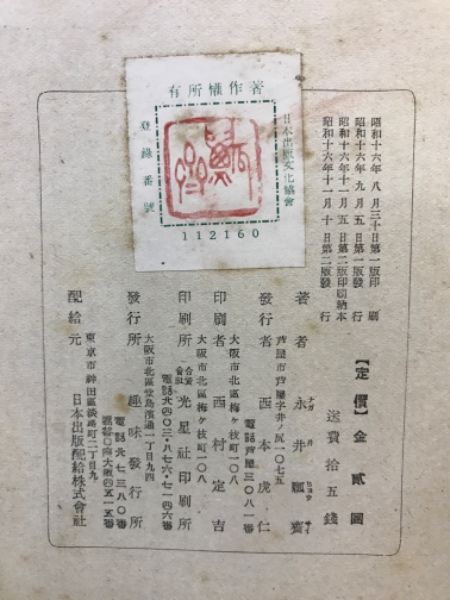 著作権所有
日本出版文化協會
登錄番號
112160
昭和十六年八月三十日第一版印刷
昭和十六年九月五日第一版發行
昭和十六年十一月五日第二版印刷納本
昭和十六年十一月十日第二版發行
【定價】金貳圓
送費拾五錢
著者 永井瓢齋
蘆屋市蘆屋字井ノ尻一〇七五
發行者 西本虎仁
電話蘆屋三〇八一番
大阪市北區梅ヶ枝町一〇八
印刷者 西村定吉
大阪市北區梅ヶ枝町一〇八
印刷所 合資會社 光星社印刷所
電話北四〇三・八七六・七一四六番
大阪市北區堂島濱通一丁目九四
發行所 趣味發行所
電話北七三八〇番
振替口座大阪四五一五番
東京市神田區淡路町二丁目九
配給元 日本出版配給株式會社